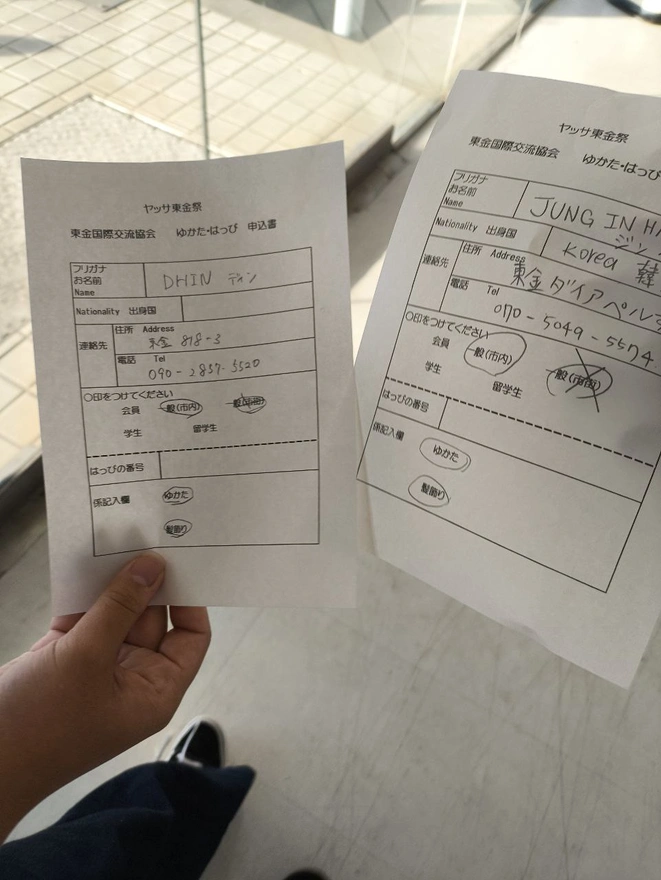 ヤッサ東金祭
東金国際交流協会 ゆかた・はっぴ 申込書
フリガナ
お名前
Name
DHIN ティン
Nationality 出身国
連絡先
住所 Address
東金 818-3
電話 Tel
090-2837-5520
〇印をつけてください
会員 一般(市内)
学生 留学生
はっぴの番号
係記入欄 ゆかた
髪飾り
ヤッサ東金祭
東金国際交流協会 ゆかた・はっぴ
フリガナ
お名前
Name
JUNG IN HA
Nationality 出身国
Korea 韓
連絡先
住所 Address
東金 ダイアペルラ
電話 Tel
070-5049-5574
〇印をつけてください
会員 一般(市内) 一般(市街)
学生 留学生
はっぴの番号
係記入欄 ゆかた
髪飾り